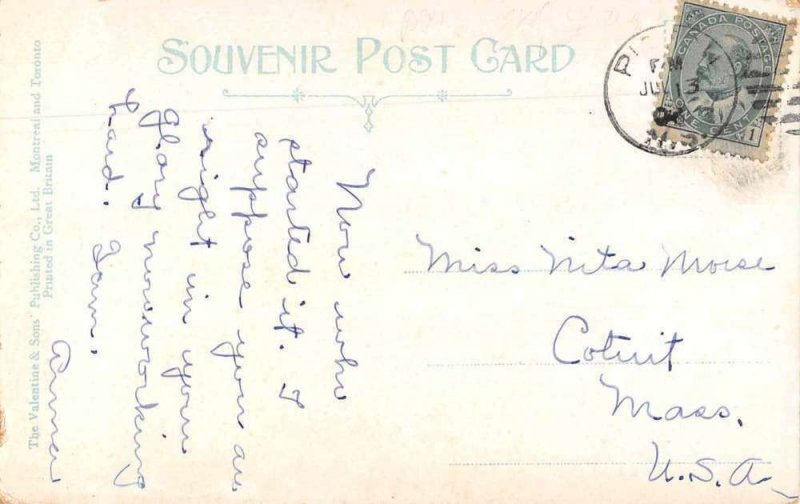 SOUVENIR POST CARD
CANADA POSTAGE
ONE CENT
1
JUL 13
N.S.
The Valentine & Sons' Publishing Co., Ltd. Montreal and Toronto
Printed in Great Britain
Now who
started it. I
suppose you are
right in your
glory now working
hard. I am.
Anna
Miss Nita Morse
Cotuit
Mass.
U.S.A.